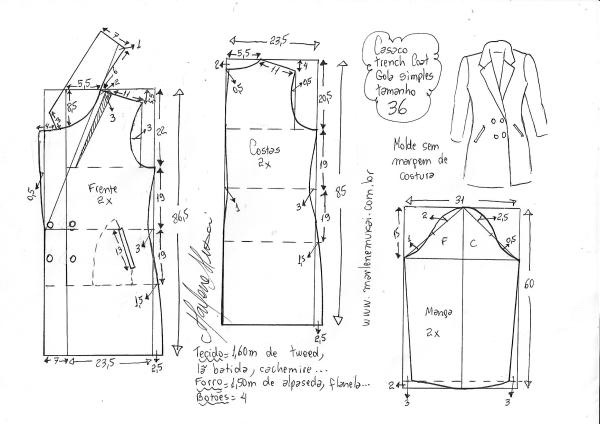 Casaco
trench Coat
Gola simples
tamanho
36
Molde sem
margem de
costura
Frente
2x
5,5
11
3
22
19
19
86,5
13
3
1,5
0,5
7
23,5
2,5
Costas
2x
23,5
2
5,5
11
4
0,5
0,5
20,5
19
19
85
1
3
1,5
2,5
www.marlenemukai.com.br
Manga
2x
F
C
31
2
2,5
1
0,5
15
60
2
3
3
Tecido = 1,60m de tweed,
lã batida, cachemire...
Forro = 1,50m de alpaseda, flanela...
Botões = 4